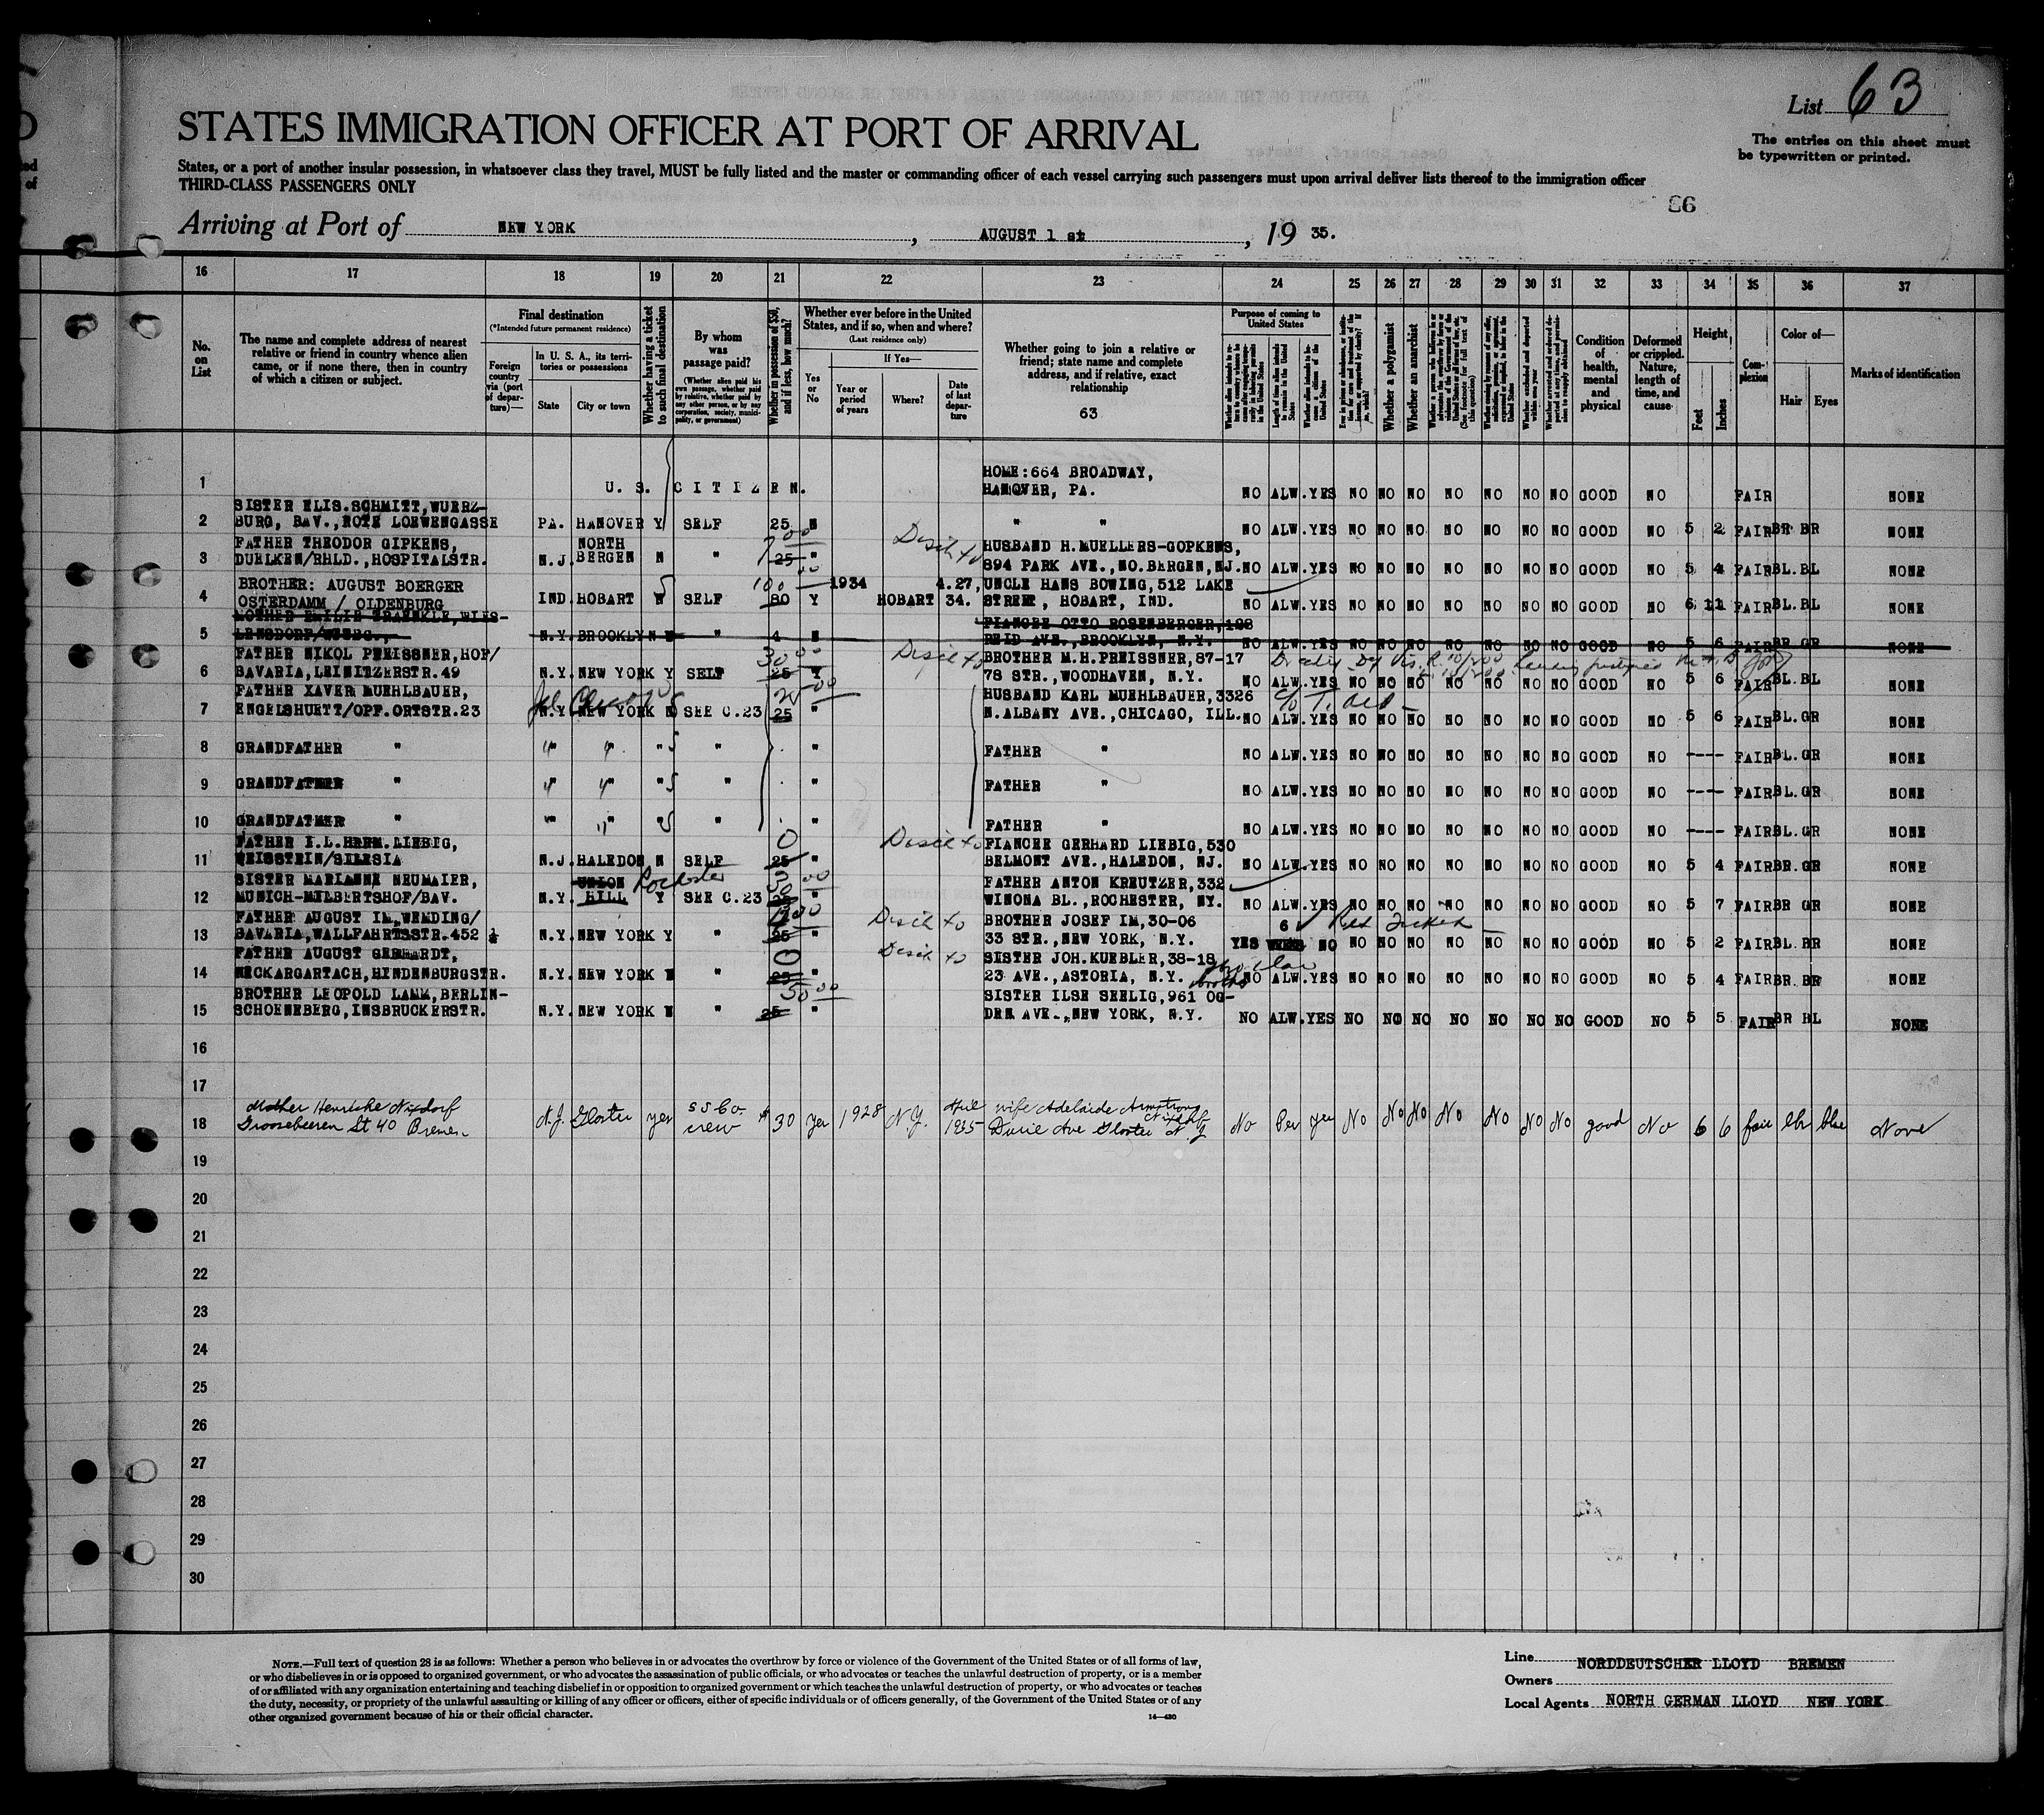 List 63
The entries on this sheet must
be typewritten or printed.
STATES IMMIGRATION OFFICER AT PORT OF ARRIVAL
States, or a port of another insular possession, in whatsoever class they travel, MUST be fully listed and the master or commanding officer of each vessel carrying such passengers must upon arrival deliver lists thereof to the immigration officer
THIRD-CLASS PASSENGERS ONLY
Arriving at Port of NEW YORK, AUGUST 1 st, 19 35.
16 17 18 19 20 21 22 23 24 25 26 27 28 29 30 31 32 33 34 35 36 37
No. on List
The name and complete address of nearest
relative or friend in country whence alien
came, or if none there, then in country
of which a citizen or subject.
Final destination
(*Intended future permanent residence)
Foreign country via (port of departure)—
In U. S. A., its territories or possessions
State
City or town
Whether having a ticket to such final destination
By whom was passage paid?
(Whether alien paid his own passage, whether paid by relative, whether paid by any other person, or by any corporation, society, municipality, or government)
Whether in possession of $50, and if less, how much?
Whether ever before in the United
States, and if so, when and where?
(Last residence only)
Yes or No
If Yes—
Year or period of years
Where?
Date of last departure
Whether going to join a relative or
friend; state name and complete
address, and if relative, exact
relationship
63
Purpose of coming to United States
Whether a polygamist
Whether an anarchist
Condition of health, mental and physical
Deformed or crippled. Nature, length of time, and cause
Height
Feet
Inches
Complexion
Color of—
Hair
Eyes
Marks of identification
HOME: 664 BROADWAY,
1 U. S. CITIZEN. HANOVER, PA. NO ALW. YES NO NO NO NO NO NO NO GOOD NO FAIR NONE
SISTER ELIS. SCHMITT, WUERZ-
2 BURG, BAV., ROTE LOEWENGASSE PA. HANOVER Y SELF 25 N " " NO ALW. YES NO NO NO NO NO NO NO GOOD NO 5 2 FAIR BR BR NONE
FATHER THEODOR GIPKENS, NORTH HUSBAND H. MUELLERS-GOPKENS,
3 DUELKEN/RHLD., HOSPITALSTR. N.J. BERGEN N " 25 " 894 PARK AVE., NO. BERGEN, NJ. NO ALW. YES NO NO NO NO NO NO NO GOOD NO 5 4 FAIR BL. BL NONE
BROTHER: AUGUST BOERGER 100 1934 4.27, UNCLE HANS BOWING, 512 LAKE
4 OSTERDAMM / OLDENBURG IND. HOBART N SELF 80 Y HOBART 34. STREET, HOBART, IND. NO ALW. YES NO NO NO NO NO NO NO GOOD NO 6 11 FAIR BL. BL NONE
FIANCEE OTTO ROSENBERGER, 198
5 N.Y. BROOKLYN N " 4 N REID AVE., BROOKLYN, N.Y. NO ALW. YES NO NO NO NO NO NO NO GOOD NO 5 6 FAIR BR. GR NONE
FATHER NIKOL PREISSNER, HOF/ 30 00 BROTHER M.H. PREISSNER, 87-17
6 BAVARIA, LEINITZERSTR. 49 N.Y. NEW YORK Y SELF 25 Y 78 STR., WOODHAVEN, N.Y. NO ALW. YES NO NO NO NO NO NO NO GOOD NO 5 6 FAIR BL. BL NONE
FATHER XAVER MUEHLBAUER, HUSBAND KARL MUEHLBAUER, 3326
7 ENGELSHUETT/OPF. ORTSTR. 23 N.Y. NEW YORK N SEE C.23 25 " N. ALBANY AVE., CHICAGO, ILL. NO ALW. YES NO NO NO NO NO NO NO GOOD NO 5 6 FAIR BL. GR NONE
8 GRANDFATHER " " " " " " FATHER " NO ALW. YES NO NO NO NO NO NO NO GOOD NO ---- FAIR BL. GR NONE
9 GRANDFATHER " " " " " " FATHER " NO ALW. YES NO NO NO NO NO NO NO GOOD NO ---- FAIR BL. GR NONE
10 GRANDFATHER " " " " " " FATHER " NO ALW. YES NO NO NO NO NO NO NO GOOD NO ---- FAIR BL. GR NONE
FATHER I.L. HERM. LIEBIG, 0 FIANCEE GERHARD LIEBIG, 530
11 WEISSTEIN/SILESIA N.J. HALEDON N SELF 25 " BELMONT AVE., HALEDON, NJ. NO ALW. YES NO NO NO NO NO NO NO GOOD NO 5 4 FAIR BR. GR NONE
SISTER MARIANNE NEUMAIER, UNION Rochester FATHER ANTON KREUTZER, 332
12 MUNICH-MILBERTSHOF/BAV. N.Y. HILL Y SEE C.23 " WINONA BL., ROCHESTER, NY. NO ALW. YES NO NO NO NO NO NO NO GOOD NO 5 7 FAIR BR GR NONE
FATHER AUGUST IM, WEMDING/ BROTHER JOSEF IM, 30-06 6
13 BAVARIA, WALLFAHRTSSTR. 452 ½ N.Y. NEW YORK Y " 25 " 33 STR., NEW YORK, N.Y. YES WEEKS NO NO NO NO NO NO NO NO GOOD NO 5 2 FAIR BL. BR NONE
FATHER AUGUST GEBHARDT, 0 SISTER JOH. KUEBLER, 38-18
14 NECKARGARTACH, HINDENBURGSTR. N.Y. NEW YORK N " 25 " 23 AVE., ASTORIA, N.Y. NO ALW. YES NO NO NO NO NO NO NO GOOD NO 5 4 FAIR BR. BR NONE
BROTHER LEOPOLD LAMM, BERLIN- 50 00 SISTER ILSE SEELIG, 961 OG-
15 SCHOENEBERG, INSBRUCKERSTR. N.Y. NEW YORK N " 25 " DEN AVE., NEW YORK, N.Y. NO ALW. YES NO NO NO NO NO NO NO GOOD NO 5 5 FAIR BR BL NONE
16
17
Mother Henrieke Nixdorf S S Co. April wife Adelaide Armstrong Nixdorf
18 Groosebeeren St 40 Bremen N.J. Gloster yes crew $30 Yes 1928 N.Y. 1935 Durie Ave Gloster N.J No Per yes No No No No No No No good No 6 6 fair blue None
19
20
21
22
23
24
25
26
27
28
29
30
NOTE.—Full text of question 28 is as follows: Whether a person who believes in or advocates the overthrow by force or violence of the Government of the United States or of all forms of law,
or who disbelieves in or is opposed to organized government, or who advocates the assassination of public officials, or who advocates or teaches the unlawful destruction of property, or is a member
of or affiliated with any organization entertaining and teaching disbelief in or opposition to organized government or which teaches the unlawful destruction of property, or who advocates or teaches
the duty, necessity, or propriety of the unlawful assaulting or killing of any officer or officers, either of specific individuals or of officers generally, of the Government of the United States or of any
other organized government because of his or their official character.
14—430
Line NORDDEUTSCHER LLOYD BREMEN
Owners
Local Agents NORTH GERMAN LLOYD NEW YORK